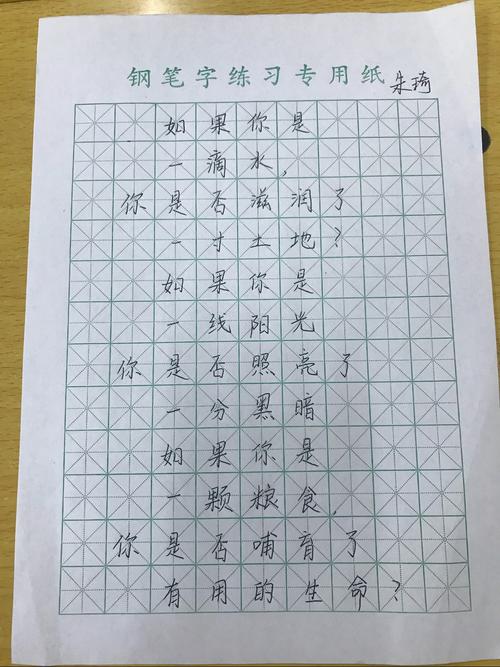 钢笔字练习专用纸 朱琦
如果你是
一滴水,
你是否滋润了
一寸土地?
如果你是
一线阳光
你是否照亮了
一分黑暗
如果你是
一颗粮食,
你是否哺育了
有用的生命?